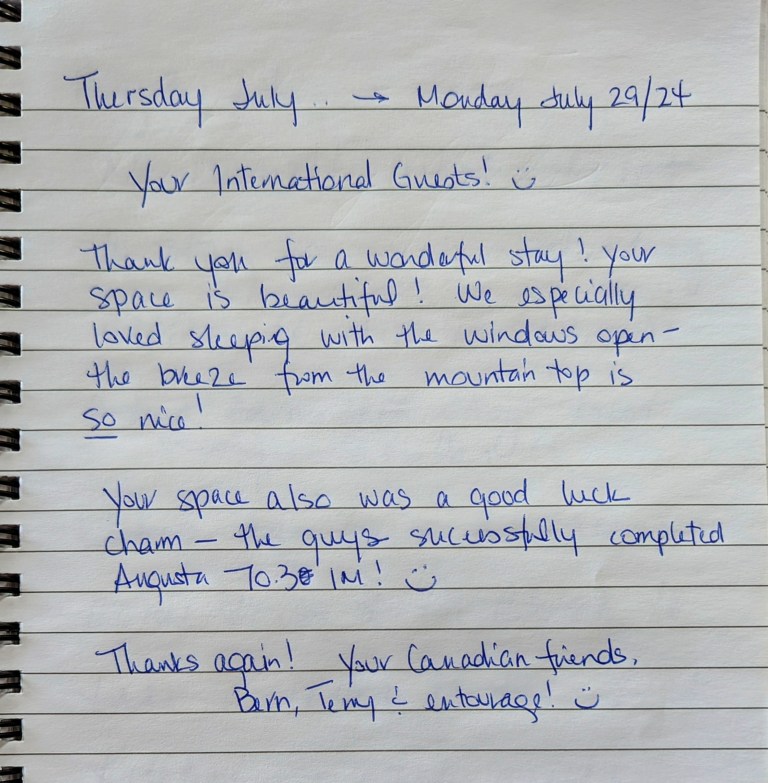 Thursday July .. → Monday July 29/24
Your International Guests! :)
Thank you for a wonderful stay! Your
space is beautiful! We especially
loved sleeping with the windows open –
the breeze from the mountain top is
so nice!
Your space also was a good luck
charm – the guys successfully completed
Augusta 70.3 IM! :)
Thanks again! Your Canadian friends,
Bern, Terry & entourage! :)